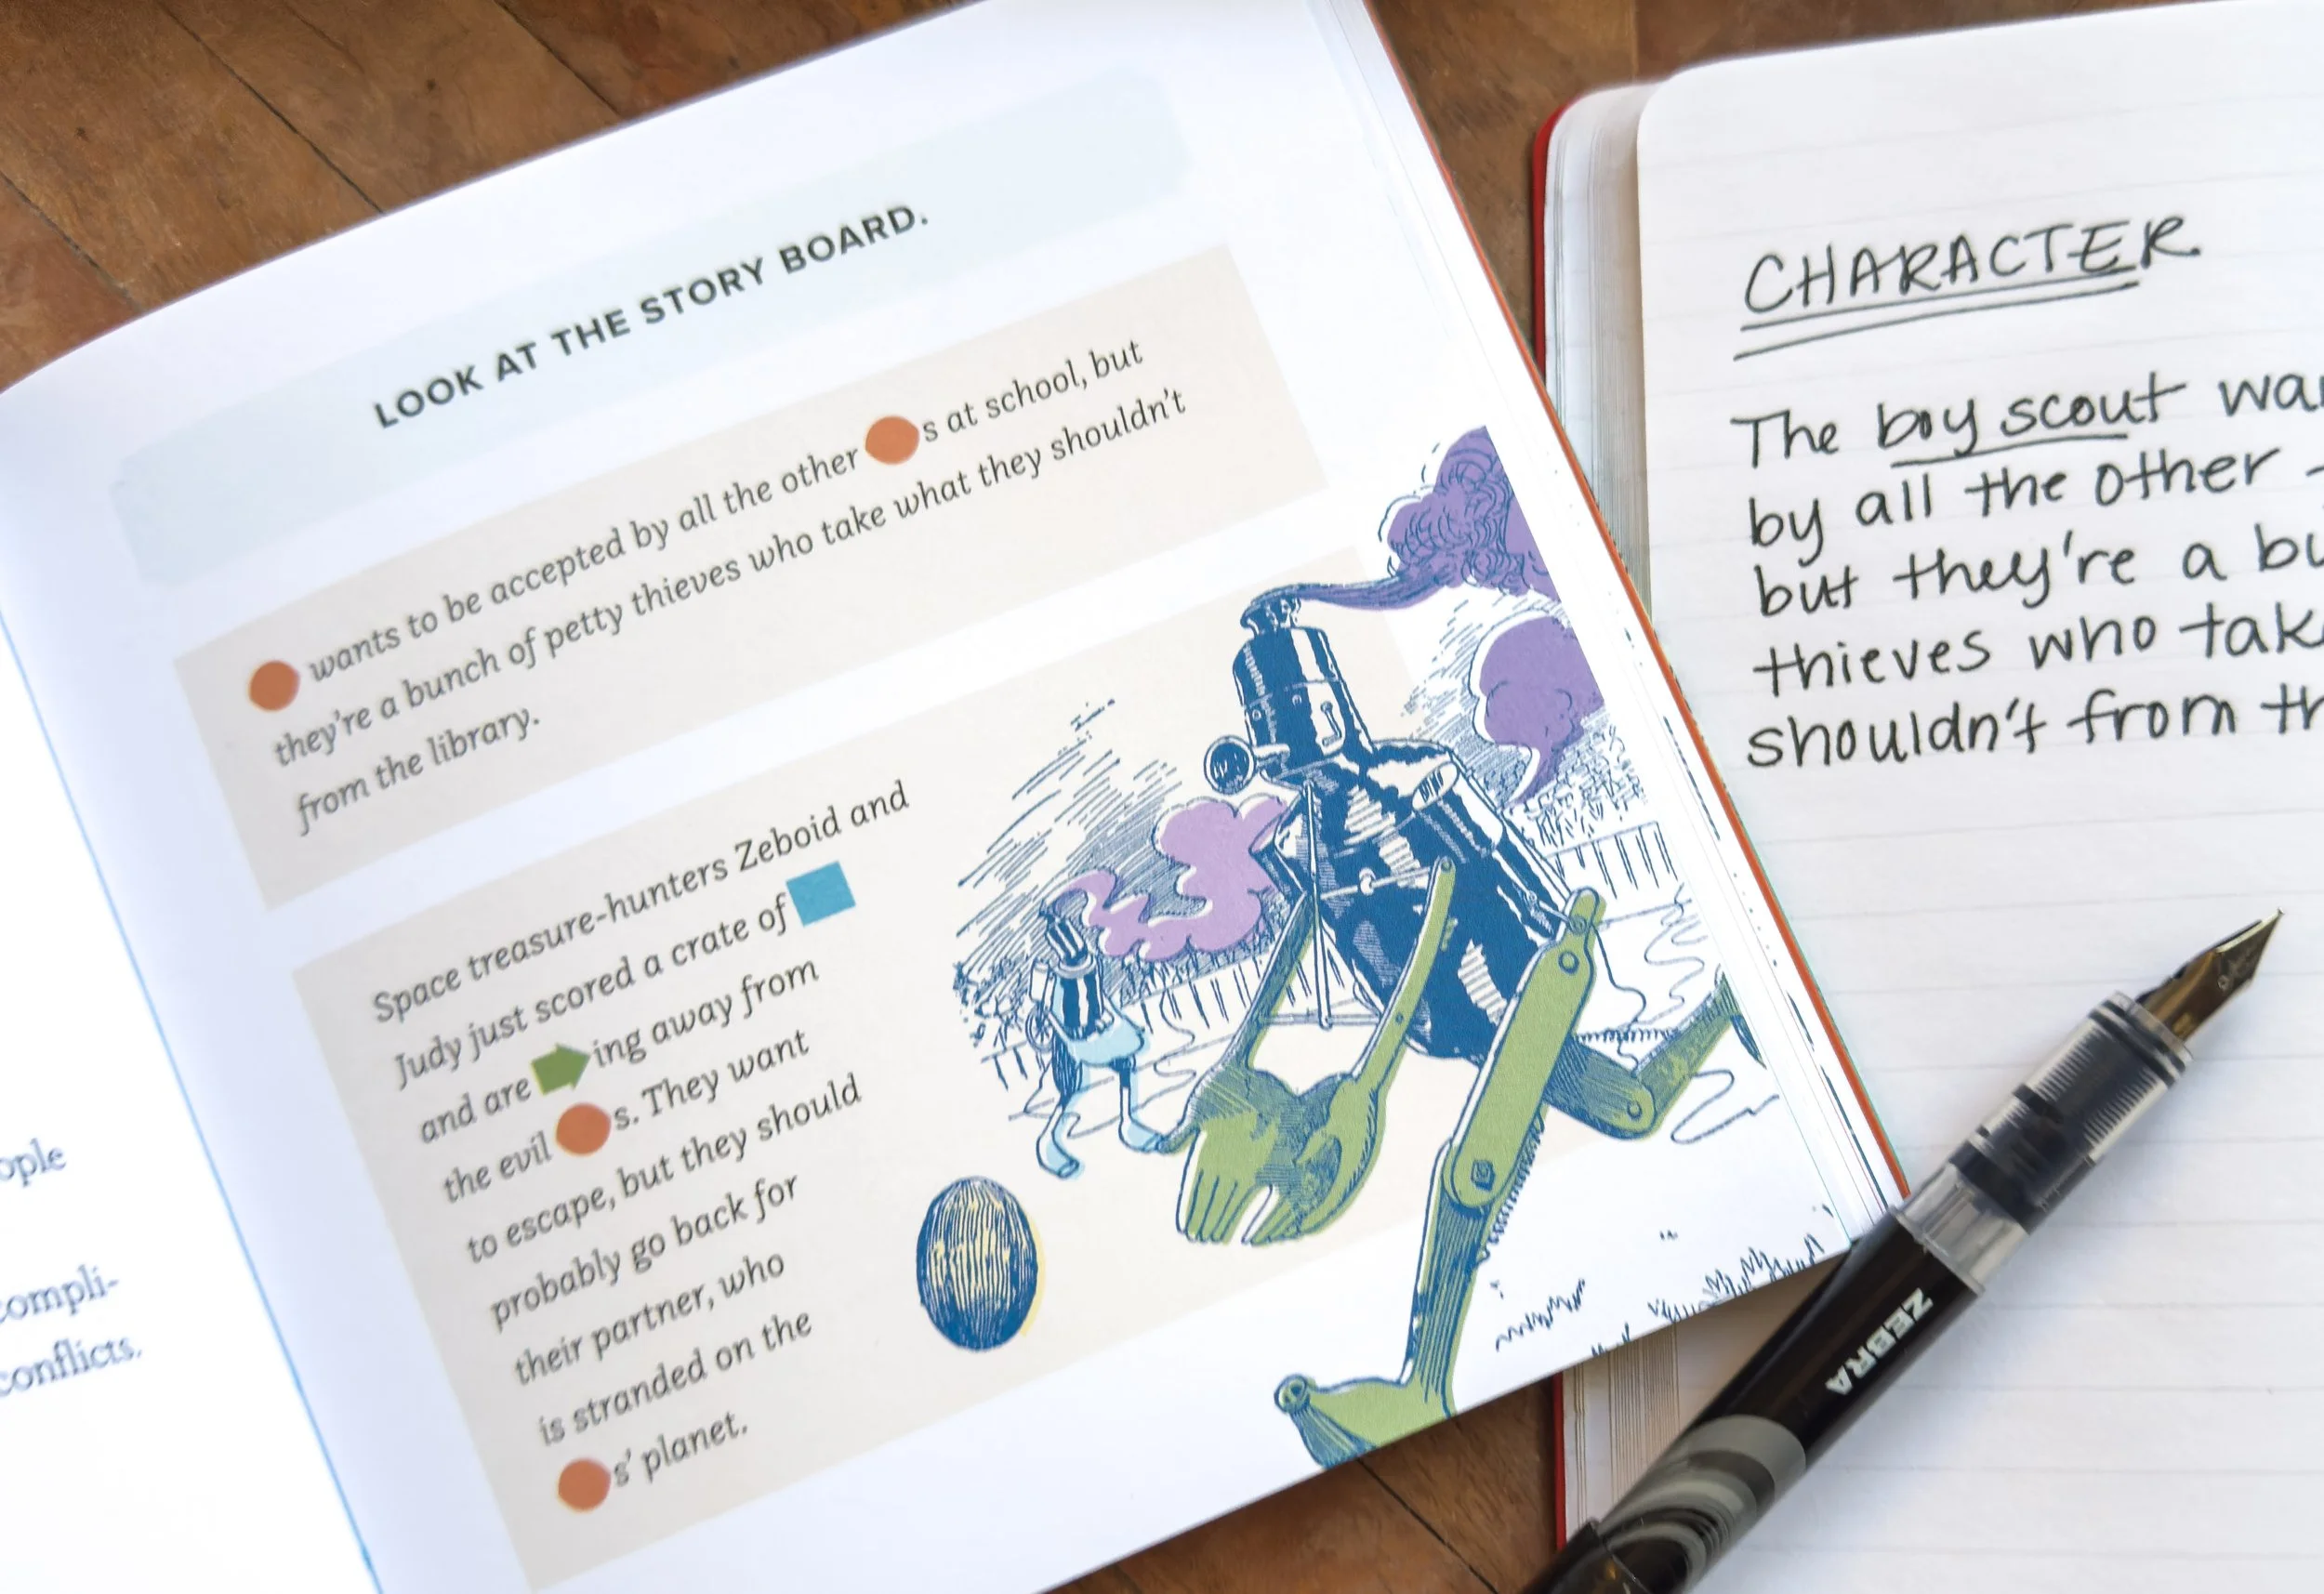 LOOK AT THE STORY BOARD.
wants to be accepted by all the other s at school, but
they're a bunch of petty thieves who take what they shouldn't
from the library.
Space treasure-hunters Zeboid and
Judy just scored a crate of
and are ing away from
the evil s. They want
to escape, but they should
probably go back for
their partner, who
is stranded on the
s' planet.
conflicts.
CHARACTER
The boy scout
by all the other
but they're a
thieves who
shouldn't from
ZEBRA